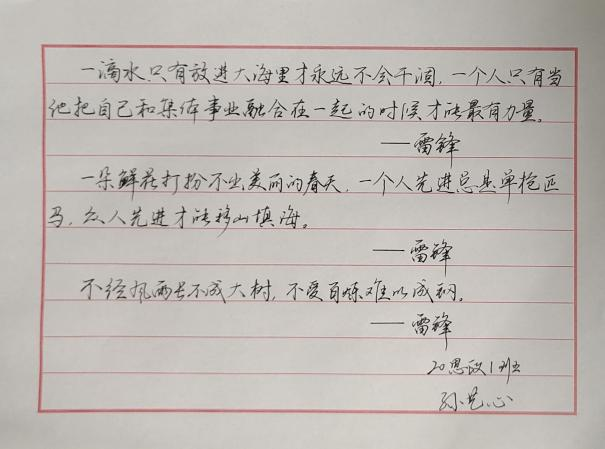 一滴水只有放进大海里才永远不会干涸，一个人只有当
他把自己和集体事业融合在一起的时候才能最有力量。
——雷锋
一朵鲜花打扮不出美丽的春天，一个人先进总是单枪匹
马，众人先进才能移山填海。
——雷锋
不经风雨长不成大树，不受百炼难以成钢。
——雷锋
20思政1班
孙艺心